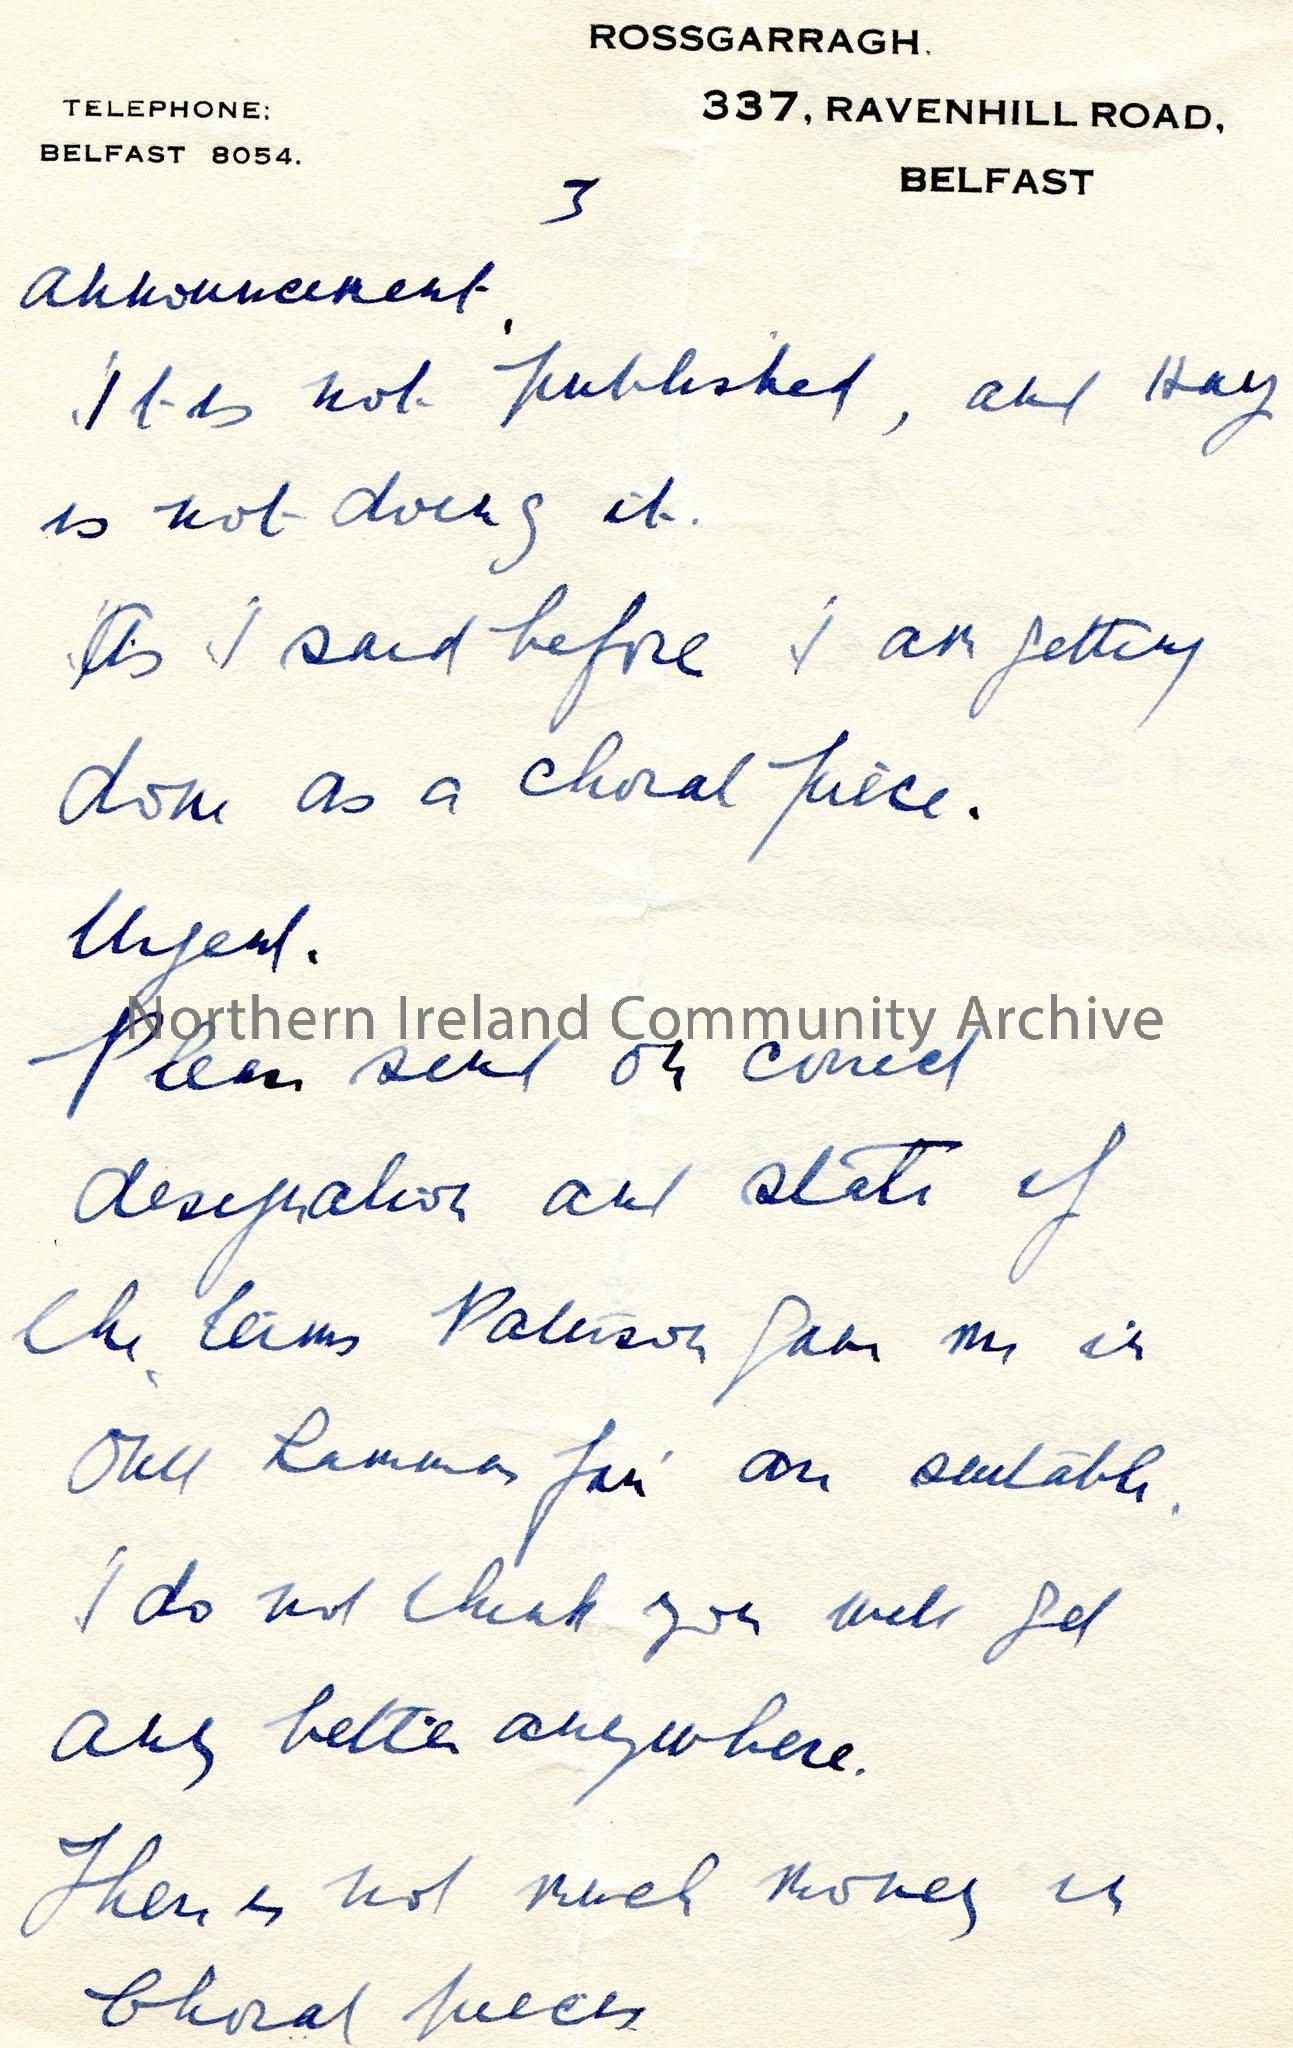 ROSSGARRAGH.
TELEPHONE:
BELFAST 8054.
337, RAVENHILL ROAD,
BELFAST
3
announcement.
It is not published, and Hay
is not doing it.
As I said before I am getting
done as a choral piece.
Urgent.
Northern Ireland Community Archive
Please send on correct
designation and state if
the terms Paterson gave me in
Oul Lammas Fair are suitable.
I do not think you will get
any better anywhere.
There is not much money in
Choral pieces